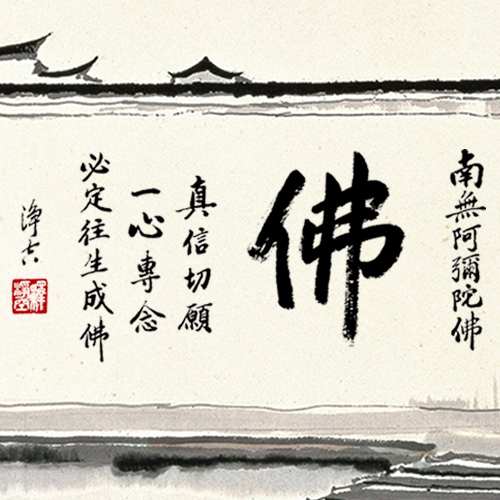 南無阿彌陀佛
佛
真信切願
一心專念
必定往生成佛
淨空